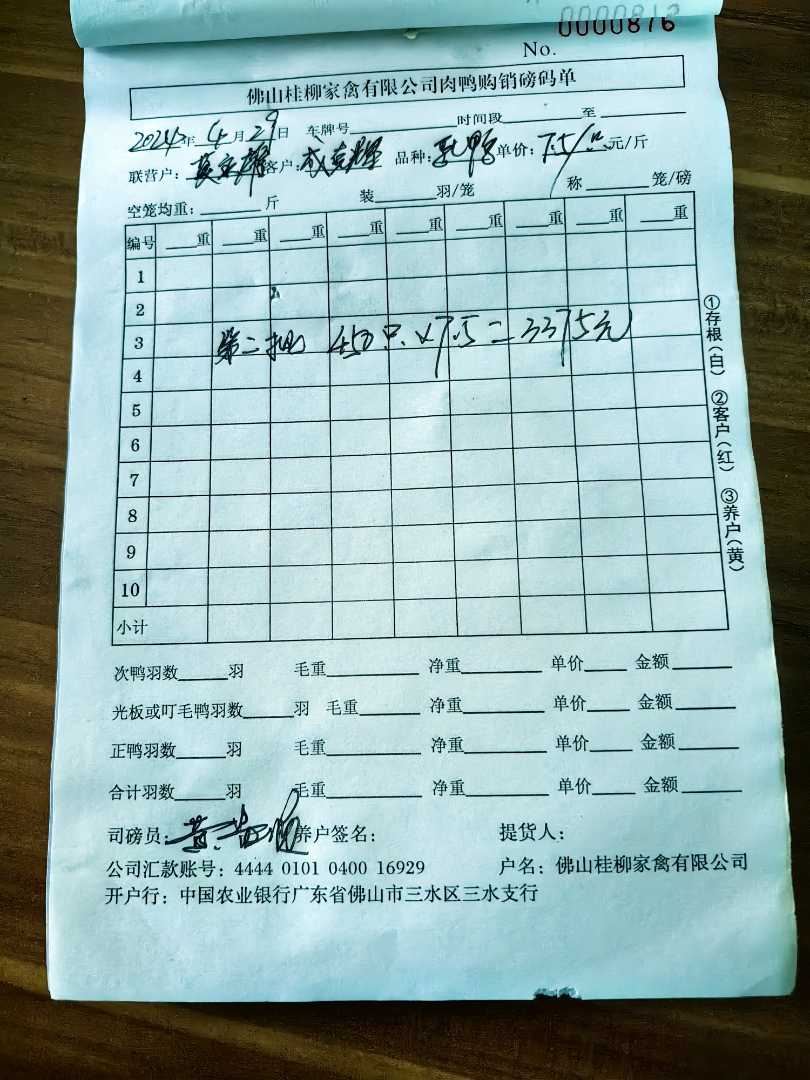 No. 0000876
佛山桂柳家禽有限公司肉鸭购销磅码单
2024年 4月29日 车牌号 时间段 至
联营户: 客户: 成克辉 品种: 乳鸭 单价: 7.5/只 元/斤
空笼均重: 斤 装 羽/笼 称 笼/磅
编号 重 重 重 重 重 重 重 重 重
1
2
3 第二批 450只×7.5=3375元
4
5
6
7
8
9
10
小计
①存根(白) ②客户(红) ③养户(黄)
次鸭羽数 羽 毛重 净重 单价 金额
光板或叮毛鸭羽数 羽 毛重 净重 单价 金额
正鸭羽数 羽 毛重 净重 单价 金额
合计羽数 羽 毛重 净重 单价 金额
司磅员: 养户签名: 提货人:
公司汇款账号: 4444 0101 0400 16929 户名: 佛山桂柳家禽有限公司
开户行: 中国农业银行广东省佛山市三水区三水支行